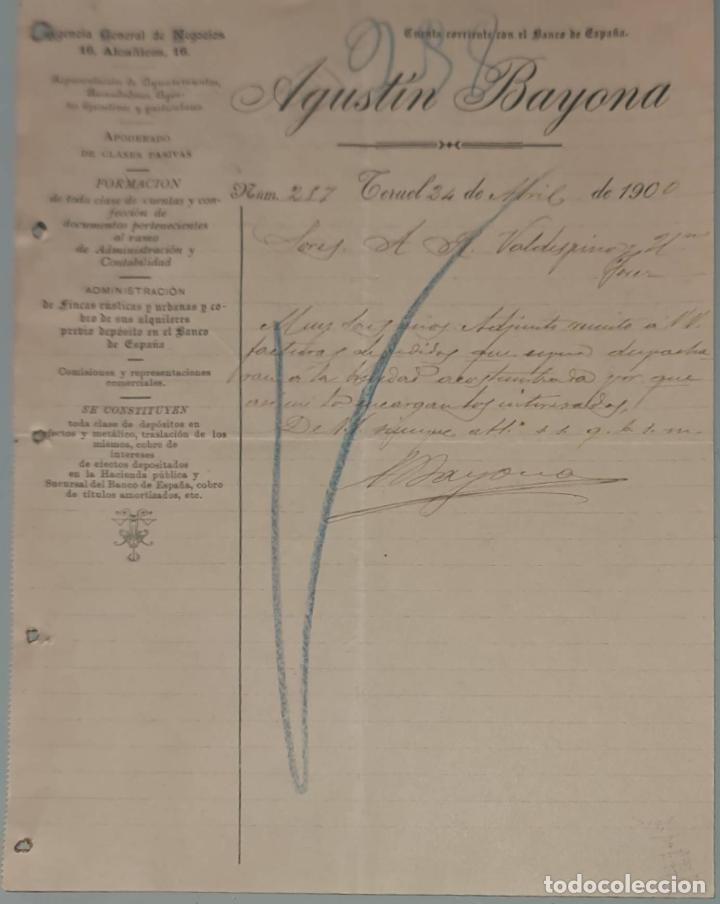 Agencia General de Negocios
16, Alcañices, 16.
Representación de Ayuntamientos,
Recaudadores, Agen-
tes Ejecutivos y particulares
APODERADO
DE CLASES PASIVAS
FORMACION
de toda clase de cuentas y con-
fección de
documentos pertenecientes
al ramo
de Administración y
Contabilidad
ADMINISTRACIÓN
de Fincas rústicas y urbanas y co-
bro de sus alquileres
previo depósito en el Banco
de España
Comisiones y representaciones
comerciales.
SE CONSTITUYEN
toda clase de depósitos en
efectos y metálico, traslación de los
mismos, cobro de
intereses
de efectos depositados
en la Hacienda pública y
Sucursal del Banco de España, cobro
de títulos amortizados, etc.
Cuenta corriente con el Banco de España.
Agustín Bayona
Núm. 287 Teruel 24 de Abril de 1900
Sores. A. R. Valdespino y Hno
Jerez
Muy Sres mios: Adjunto remito a VV
facturas de pedidos que espero despacha-
ran a la brevedad acostumbrada por que
asi me lo encargan los interesados,
De V. siempre atto. s. s. q. b. s. m.
ABayona
todocoleccion
todocoleccion.net